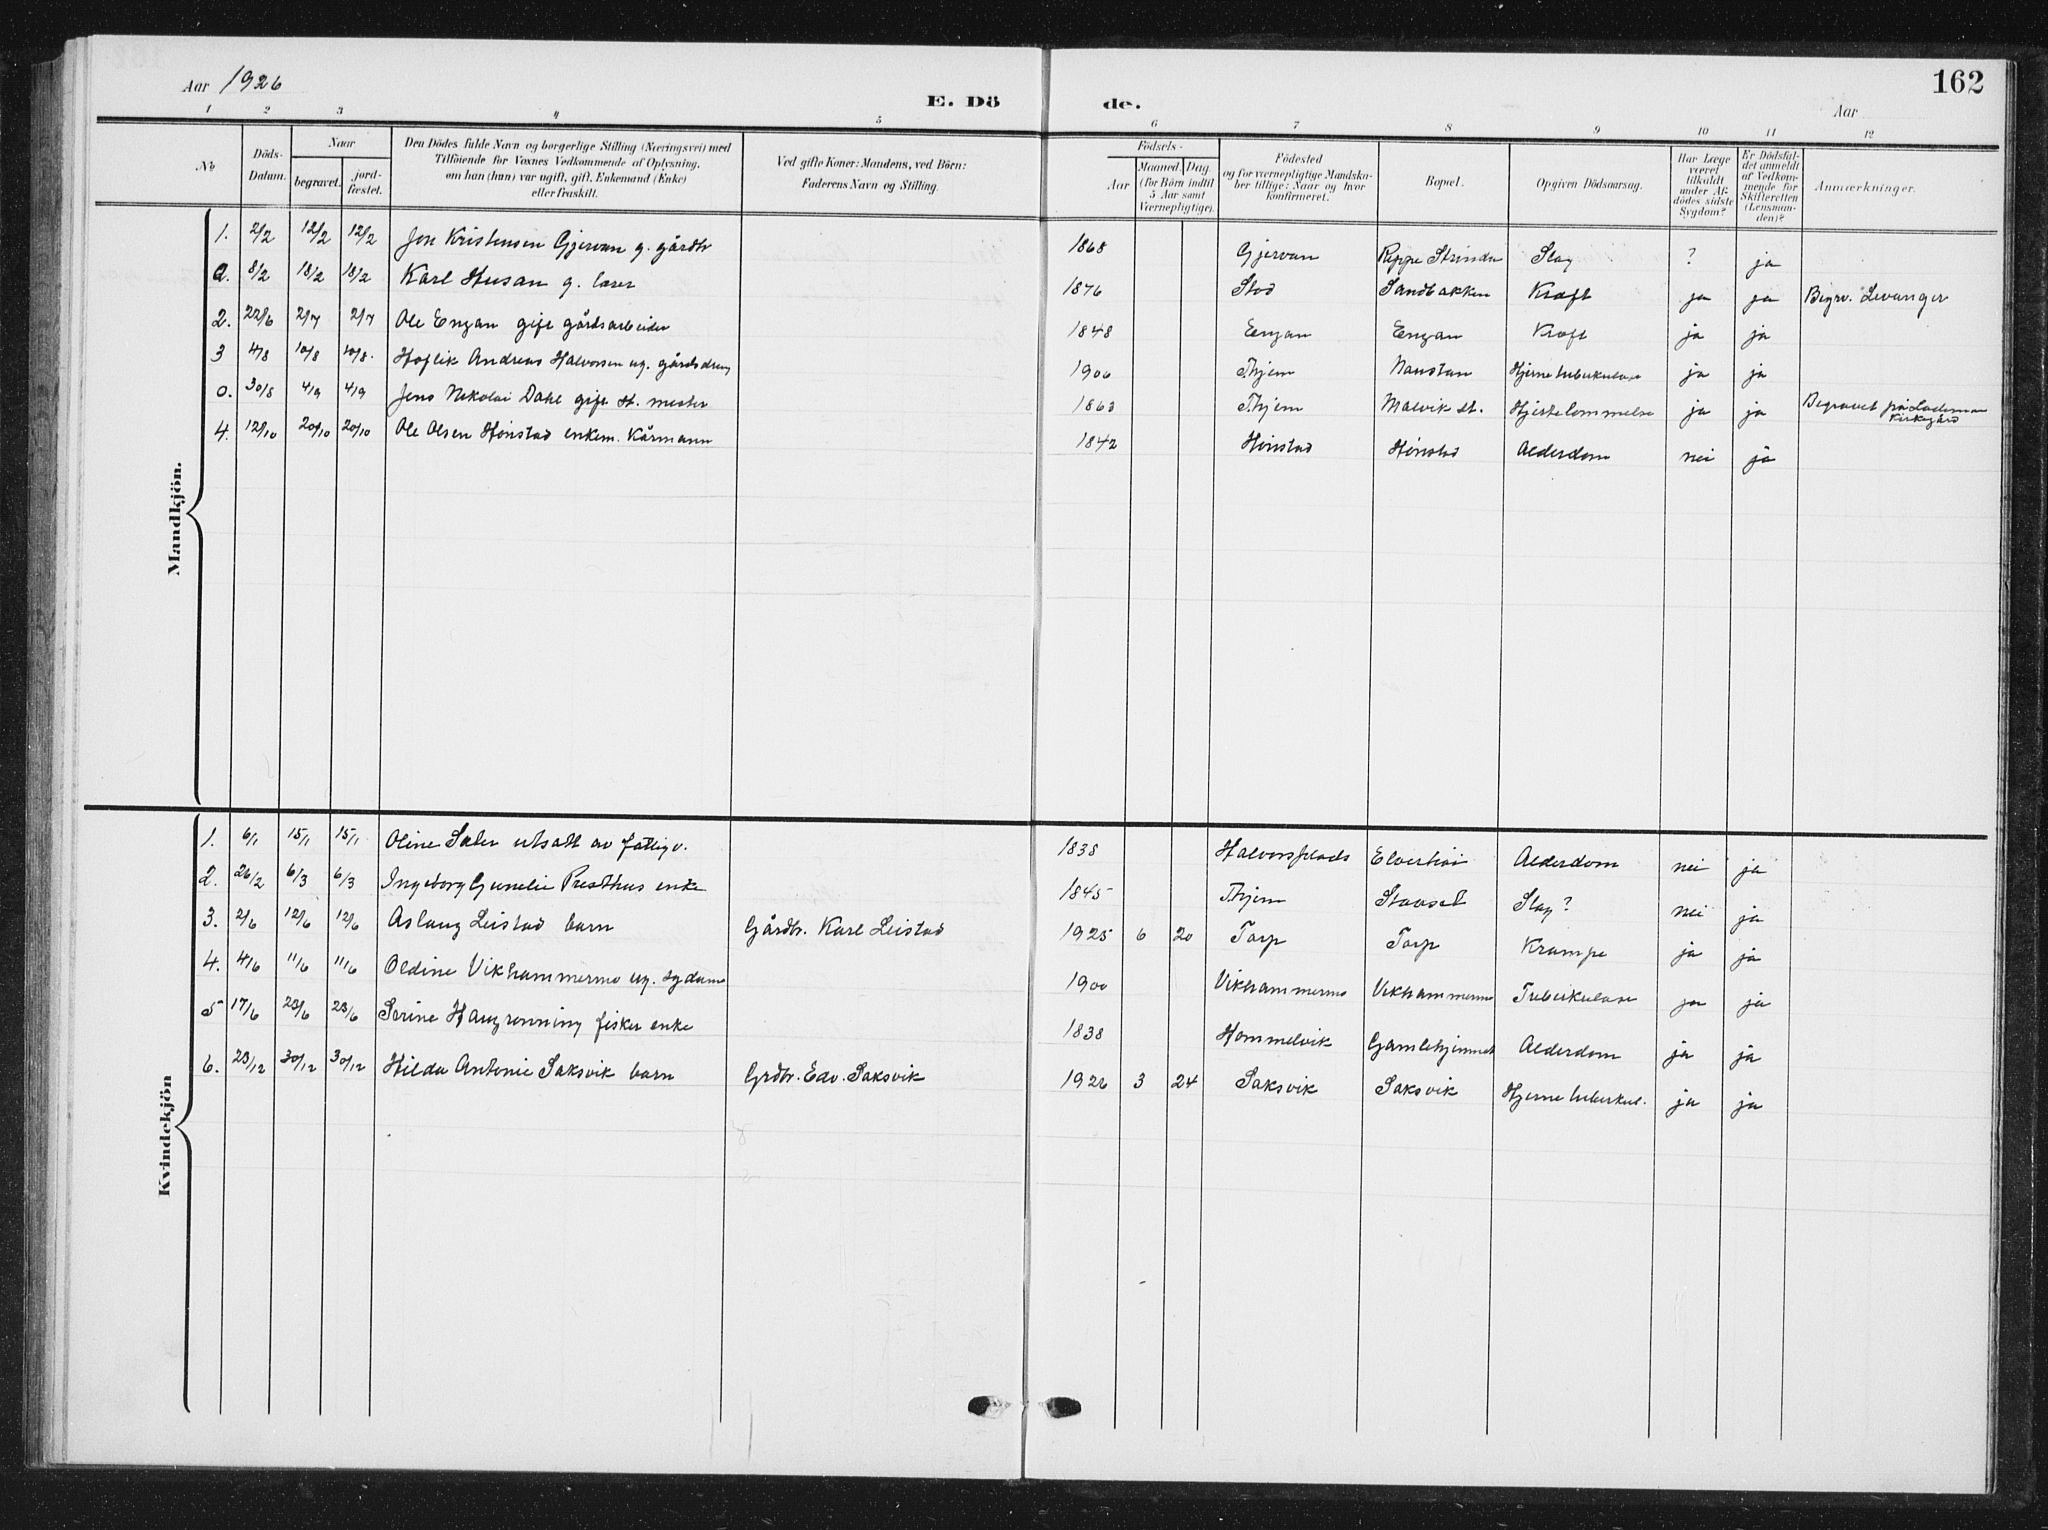 162
Aar 1926
E. Dö de.
Aar
1 2 3 4 5 6 7 8 9 10 11 12
No
Döds-Datum.
Naar
begravet.
jord-fæstet.
Den Dödes fulde Navn og borgerlige Stilling (Næringsvei) med
Tilföiende for Voxnes Vedkommende af Oplysning,
om han (hun) var ugift, gift, Enkemand (Enke)
eller fraskilt.
Ved gifte Koner: Mandens, ved Börn:
Faderens Navn og Stilling.
Födsels-
Aar
Maaned. Dag.
(for Börn indtil
5 Aar samt
Værnepligtige).
Födested
og for værnepligtige Mandska-
ber tillige: Naar og hvor
konfirmeret.
Bopæl.
Opgiven Dödsaarsag.
Har Læge
været
tilkaldt
under Af-
dödes sidste
Sygdom?
Er Dödsfal-
det anmeldt
af Vedkom-
mende for
Skifteretten
(Lensman-
den)?
Anmærkninger.
Mandkjön.
1. 2/2 12/2 12/2 Jon Kristensen Gjervan g. gårdbr 1868 Gjervan Reppe Strinda Slag ? ja
a. 8/2 18/2 18/2 Karl Husan g. lærer 1876 Stod Sandbakken Kræft ja ja Begrv. Levanger
2. 22/6 2/7 2/7 Ole Engan gift gårdsarbeider 1848 Engan Engan Kræft ja ja
3 4/8 10/8 10/8. Hoflik Andreas Halvorsen ug. gårdsdreng 1906 Thjem Naustan Hjernetuberkulose ja ja
o. 30/8 4/9 4/9 Jens Nikolai Dahl gift st. mester Thjem Malvik st. Hjertelammelse ja ja Begravet på Lademoen Kirkegård
4. 12/10 20/10 20/10 Ole Olsen Hønstad enkem. Kårmann 1842 Hønstad Hønstad Alderdom nei ja
Kvindekjön
1. 6/1 15/1 15/1 Oline Sæter utsatt av fattigv. 1838 Halvorsplads Elverhøi Alderdom nei ja
2. 26/2 6/3 6/3 Ingeborg Gunelie Presthus enke 1845 Thjem Slag? nei ja
3. 2/6 12/6 12/6 Aslaug Leistad barn Gårdbr. Karl Leistad 1925 6 20 Torp Torp Krampe ja ja
4. 4/6 11/6 11/6 Oldine Vikhammermo ug. sydame 1900 Vikhammermo Vikhammermo Tuberkulose ja ja
5 17/6 23/6 23/6 Serine Haugrønning fisker enke 1838 Hommelvik Gamlehjemmet Alderdom ja ja
6. 23/12 30/12 30/12 Hilda Antonie Saksvik barn Grdbr. Edv. Saksvik 1926 3 24 Saksvik Saksvik Hjerne tuberkul. ja ja